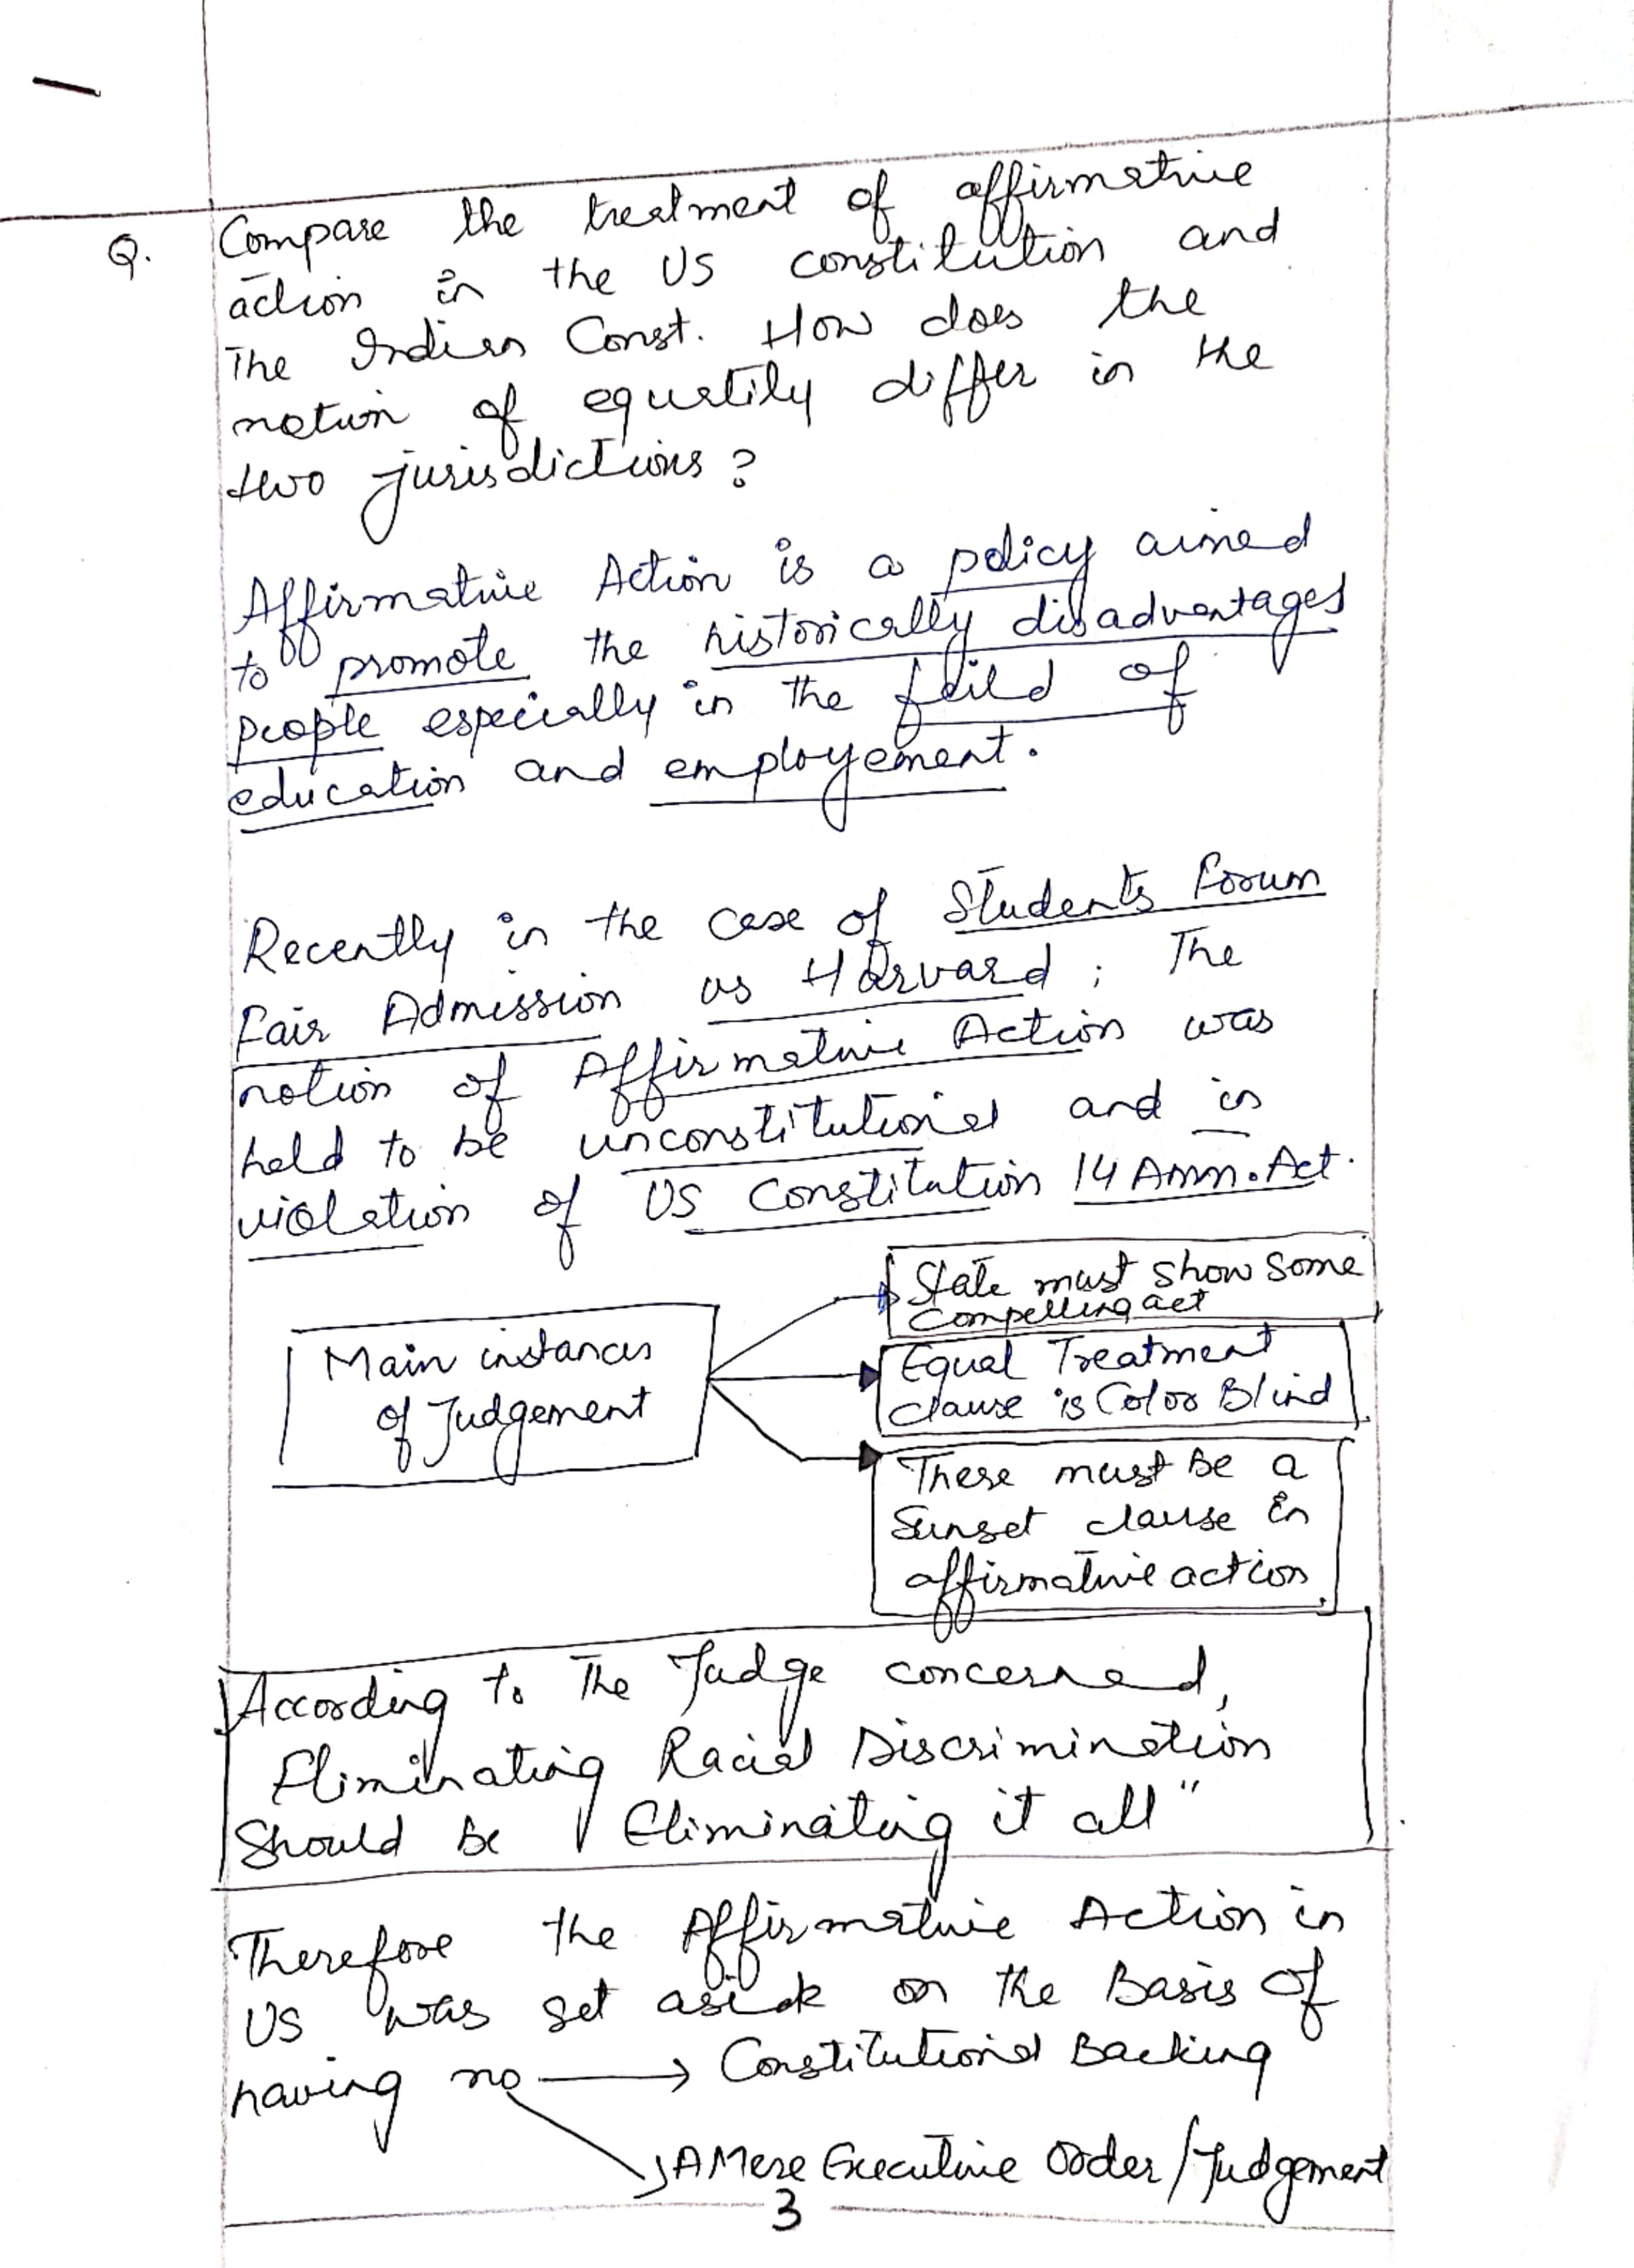 Q. Compare the treatment of affirmative
action in the US constitution and
The Indian Const. How does the
notion of equatily differ in the
two jurisdictions?
Affirmative Action is a policy aimed
to promote the historically disadvantages
people especially in the feild of
education and employement.
Recently in the case of Students Forum
Fair Admission vs Harvard; The
notion of Affirmative Action was
held to be unconstitutional and in
violation of US Constitution 14 Amm. Act.
State must show some
compelling act
Main instances
of Judgement
Equal Treatment
clause is Color Blind
There must be a
Sunset clause in
affirmative action.
According to The Judge concerned,
Eliminating Racial Discrimination
Should be Eliminating it all"
Therefore the Affirmative Action in
US was set aside on the Basis of
having no → Constitutional Backing
A Mere Executive Order/Judgement
3